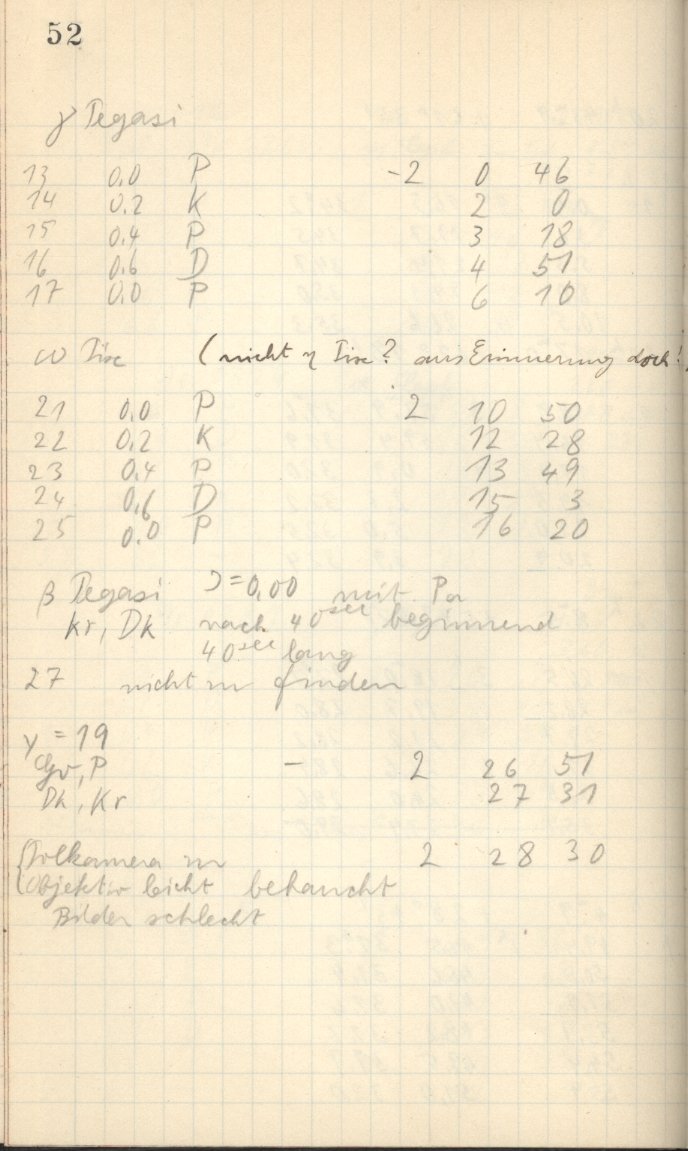 52
γ Pegasi
13 0.0 P -2 0 46
14 0.2 K 2 0
15 0.4 P 3 18
16 0.6 D 4 51
17 0.0 P 6 10
ω Pisc (nicht η Pisc? aus Erinnerung doch!)
21 0.0 P 2 10 50
22 0.2 K 12 28
23 0.4 P 13 49
24 0.6 D 15 3
25 0.0 P 16 20
β Pegasi J=0,00 mit Pa
Kr, Dk nach 40sec beginnend
40sec lang
27 nicht zu finden
γ = 19
Gr, P - 2 26 51
Dk, Kr 27 31
Polkamera zu 2 28 30
Objektiv leicht behaucht
Bilder schlecht